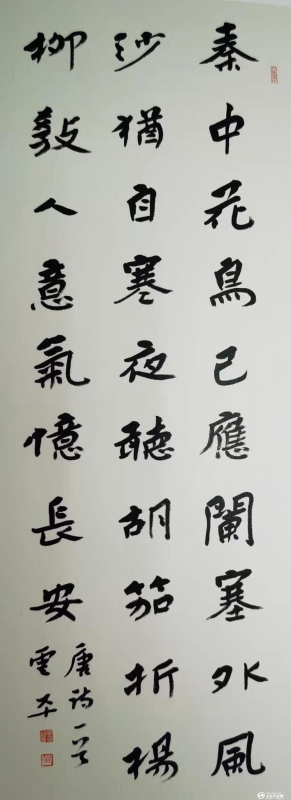 秦中花鳥已應闌塞外風
沙猶自寒夜聽胡笳折楊
柳教人意氣憶長安
唐詩一首
雲